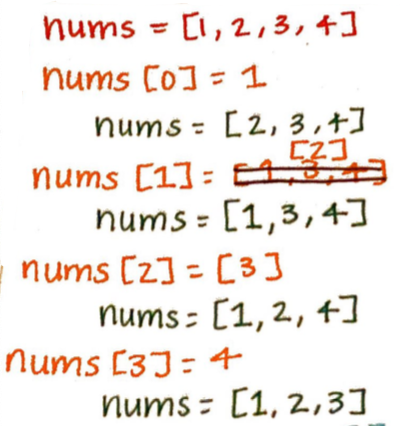 nums = [1, 2, 3, 4]
nums [0] = 1
nums = [2, 3, 4]
[2]
nums [1] = [1, 3, 4]
nums = [1, 3, 4]
nums [2] = [3]
nums = [1, 2, 4]
nums [3] = 4
nums = [1, 2, 3]